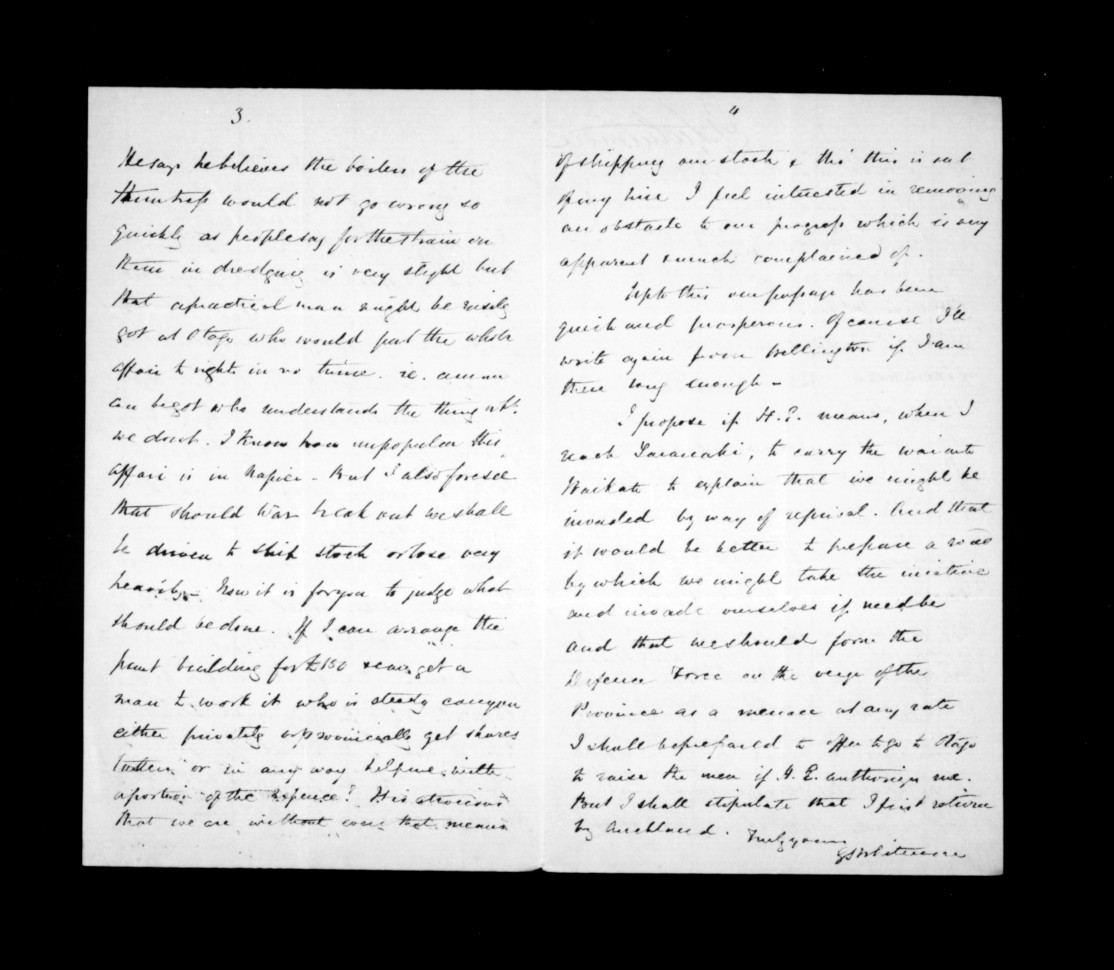 3.
He says he believes the boilers of the
would not go wrong so
quickly as people say for the strain on
them in dredging is very slight but
that a practical man might be easily
got at Otago who would put the whole
affair to rights in no time. ie. a man
can be got who understands the thing wh:
we don't. I know how unpopular this
affair is in Napier - But I also foresee
that should War break out we shall
be driven to ship stock or lose very
heavily - Now it is for you to judge what
should be done. If I can arrange the
punt building for £150 & can get a
man to work it who is steady can you
either privately or provincially get shares
taken or in any way help me with
a portion of the expence? It is atrocious
that we are without even that means
4
of shipping our stock & tho' this is not
of my hire I feel interested in removing
an obstacle to our progress which is very
apparent & much complained of.
Up to this our passage has been
quick and prosperous. Of course I'll
write again from Wellington if I am
there long enough -
I propose if H.E. means, when I
reach Taranaki, to carry the war into
Waikato to explain that we might be
invaded by way of reprisal. And that
it would be better to prepare a road
by which we might take the initiative
and invade ourselves if need be
and that we should form the
Defence Force on the verge of the
Province as a menace at any rate
I shall be prepared to offer to go to Otago
to raise the men if H.E. authorises me.
But I shall stipulate that I first return
by Auckland.
Truly yours
GS Whitmore